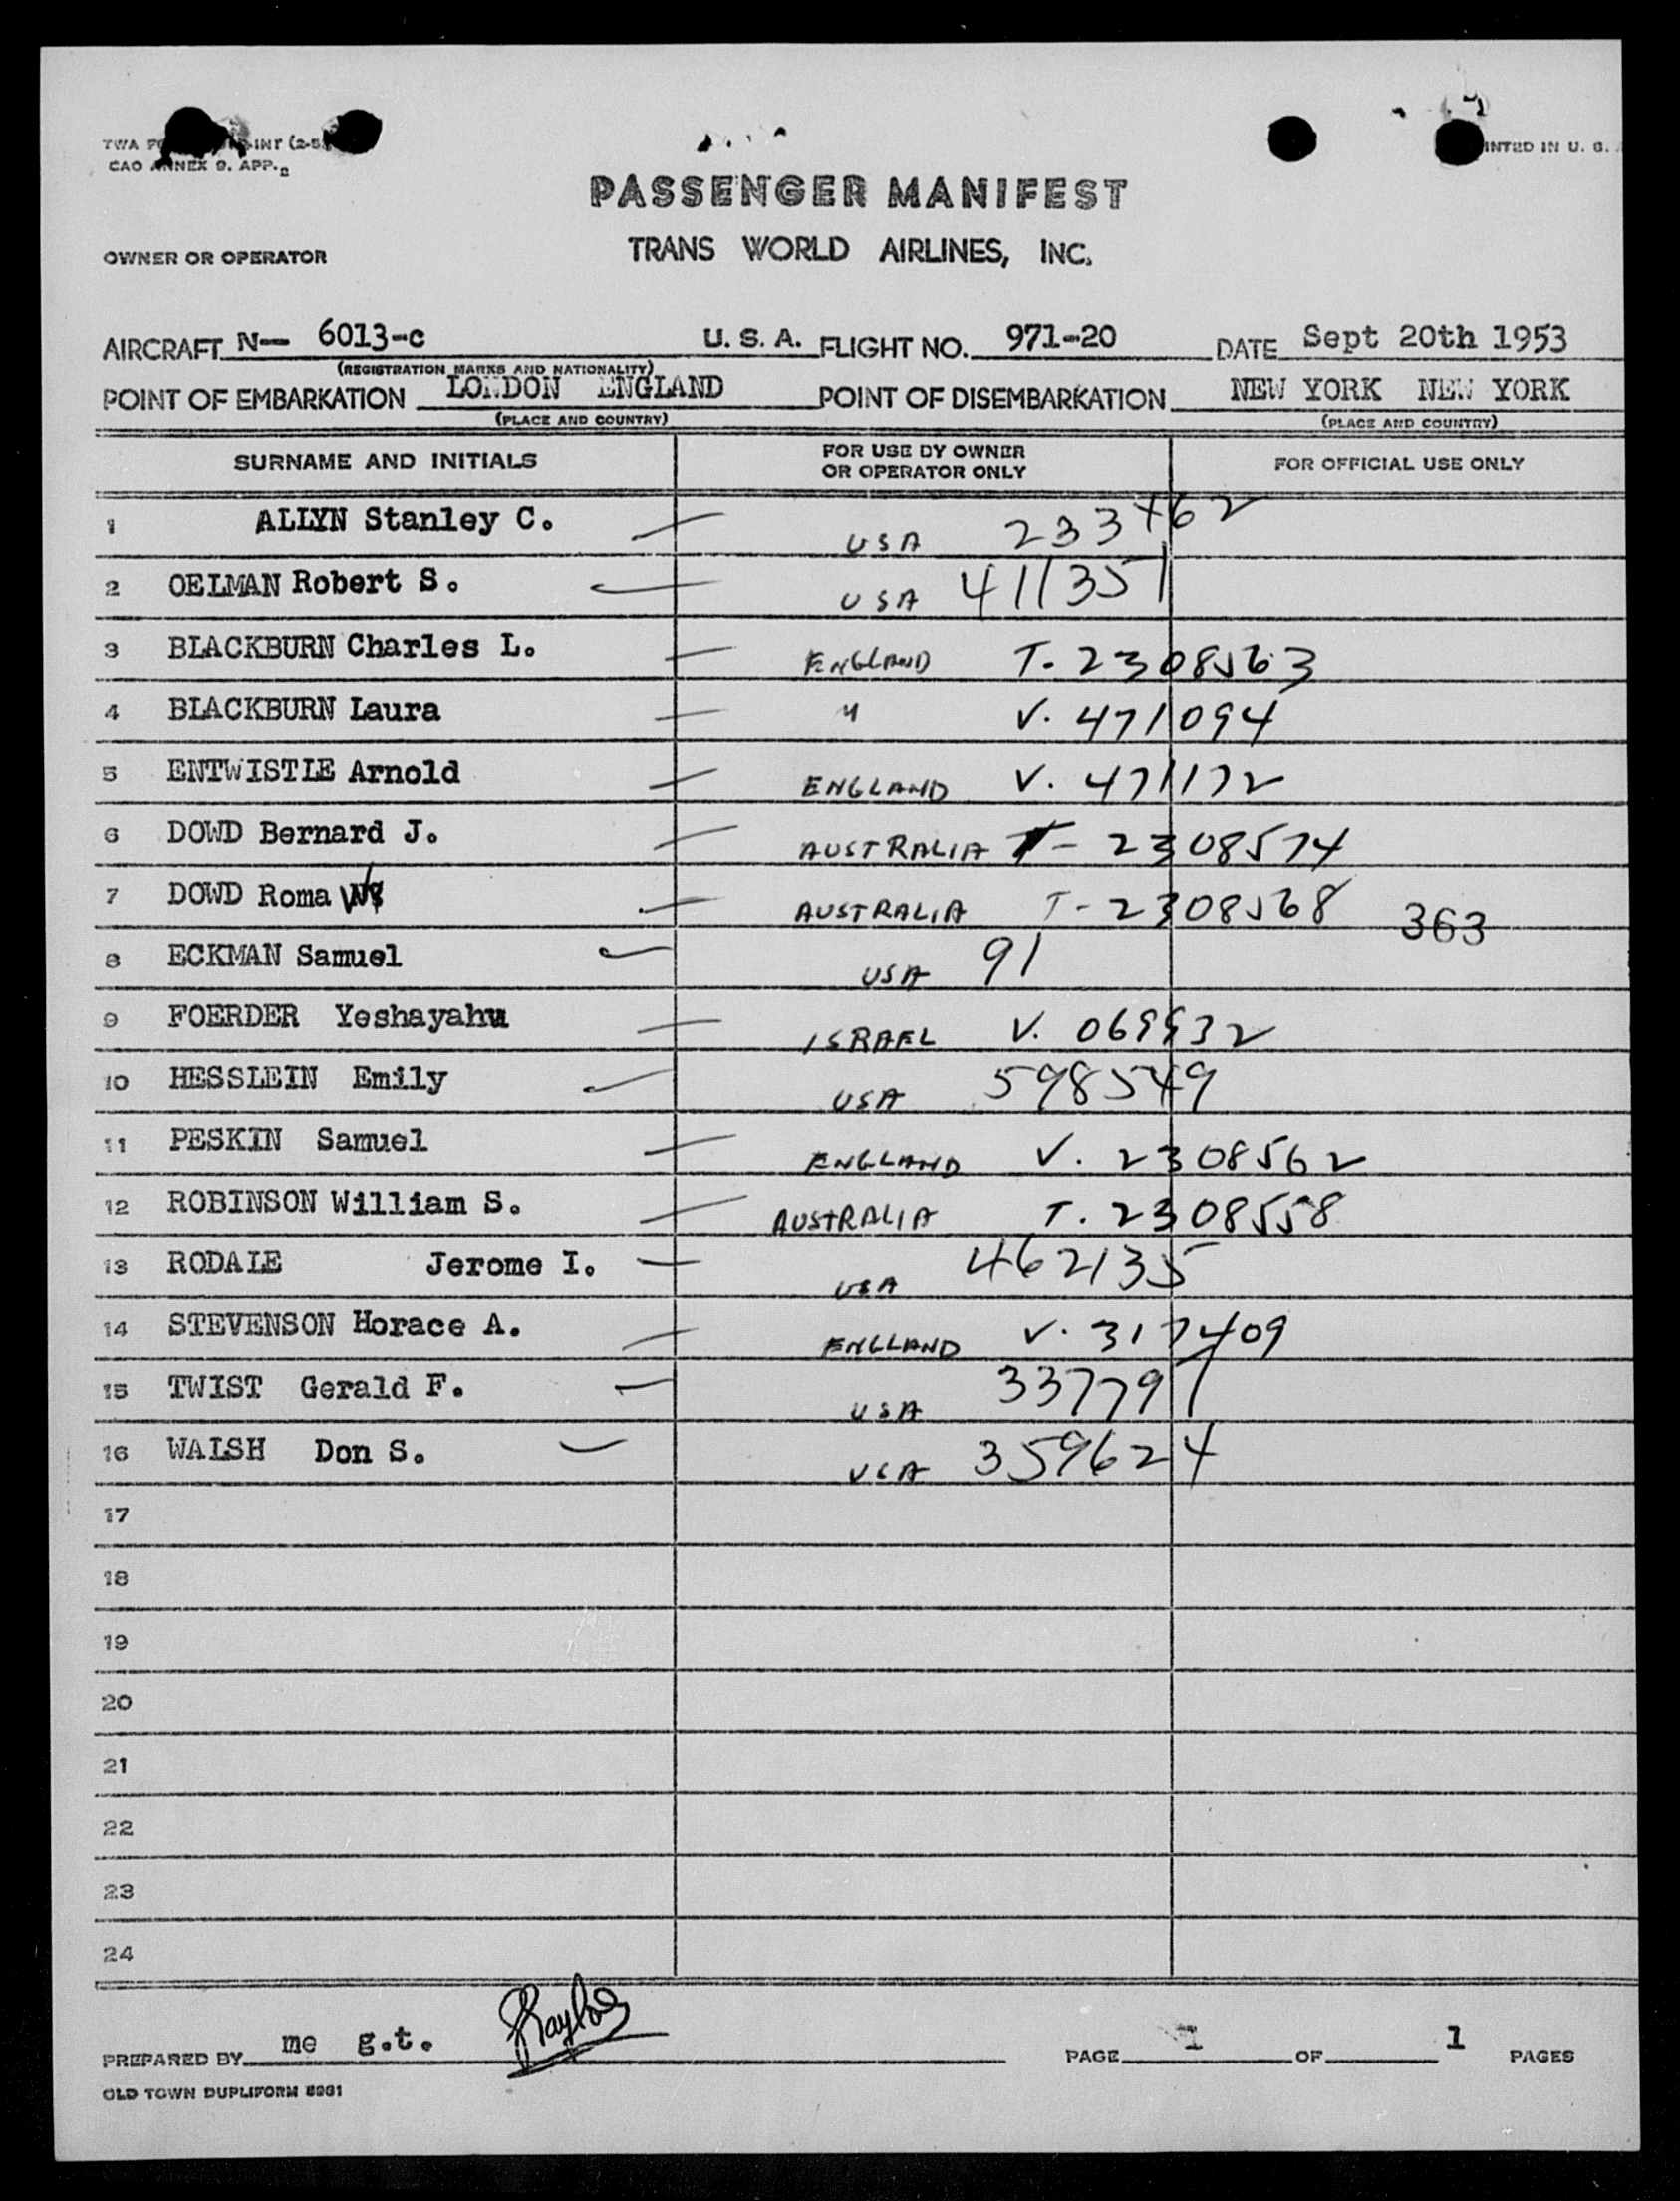 CAO ANNEX 9. APP.
INTED IN U. S.
PASSENGER MANIFEST
OWNER OR OPERATOR TRANS WORLD AIRLINES, INC.
AIRCRAFT N— 6013-c U. S. A. FLIGHT NO. 971-20 DATE Sept 20th 1953
(REGISTRATION MARKS AND NATIONALITY)
POINT OF EMBARKATION LONDON ENGLAND POINT OF DISEMBARKATION NEW YORK NEW YORK
(PLACE AND COUNTRY) (PLACE AND COUNTRY)
SURNAME AND INITIALS FOR USE BY OWNER OR OPERATOR ONLY FOR OFFICIAL USE ONLY
1 ALLYN Stanley C. — USA 233462
2 OELMAN Robert S. — USA 411351
3 BLACKBURN Charles L. — ENGLAND T. 2308563
4 BLACKBURN Laura — " V. 471094
5 ENTWISTLE Arnold — ENGLAND V. 471172
6 DOWD Bernard J. — AUSTRALIA T- 2308574
7 DOWD Roma — AUSTRALIA T- 2308568 363
8 ECKMAN Samuel — USA 91
9 FOERDER Yeshayahu — ISRAEL V. 069932
10 HESSLEIN Emily — USA 598549
11 PESKIN Samuel — ENGLAND V. 2308562
12 ROBINSON William S. — AUSTRALIA T. 2308558
13 RODALE Jerome I. — USA 462135
14 STEVENSON Horace A. — ENGLAND V. 317409
15 TWIST Gerald F. — USA 337797
16 WALSH Don S. — USA 359624
17
18
19
20
21
22
23
24
PREPARED BY me g.t. PAGE 1 OF 1 PAGES
OLD TOWN DUPLIFORM